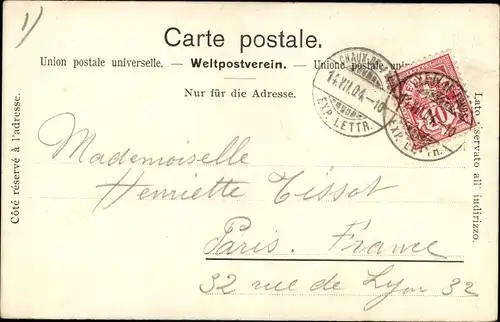 1)
Carte postale.
Union postale universelle. — Weltpostverein. — Unione postale
Nur für die Adresse.
Côté réservé à l'adresse.
Lato riservato all' indirizzo.
14.VII.04.-10
EXP. LETTR.
10
EXP. LETTR.
Mademoiselle
Henriette Tissot
Paris. France
32 rue de Lyon 32